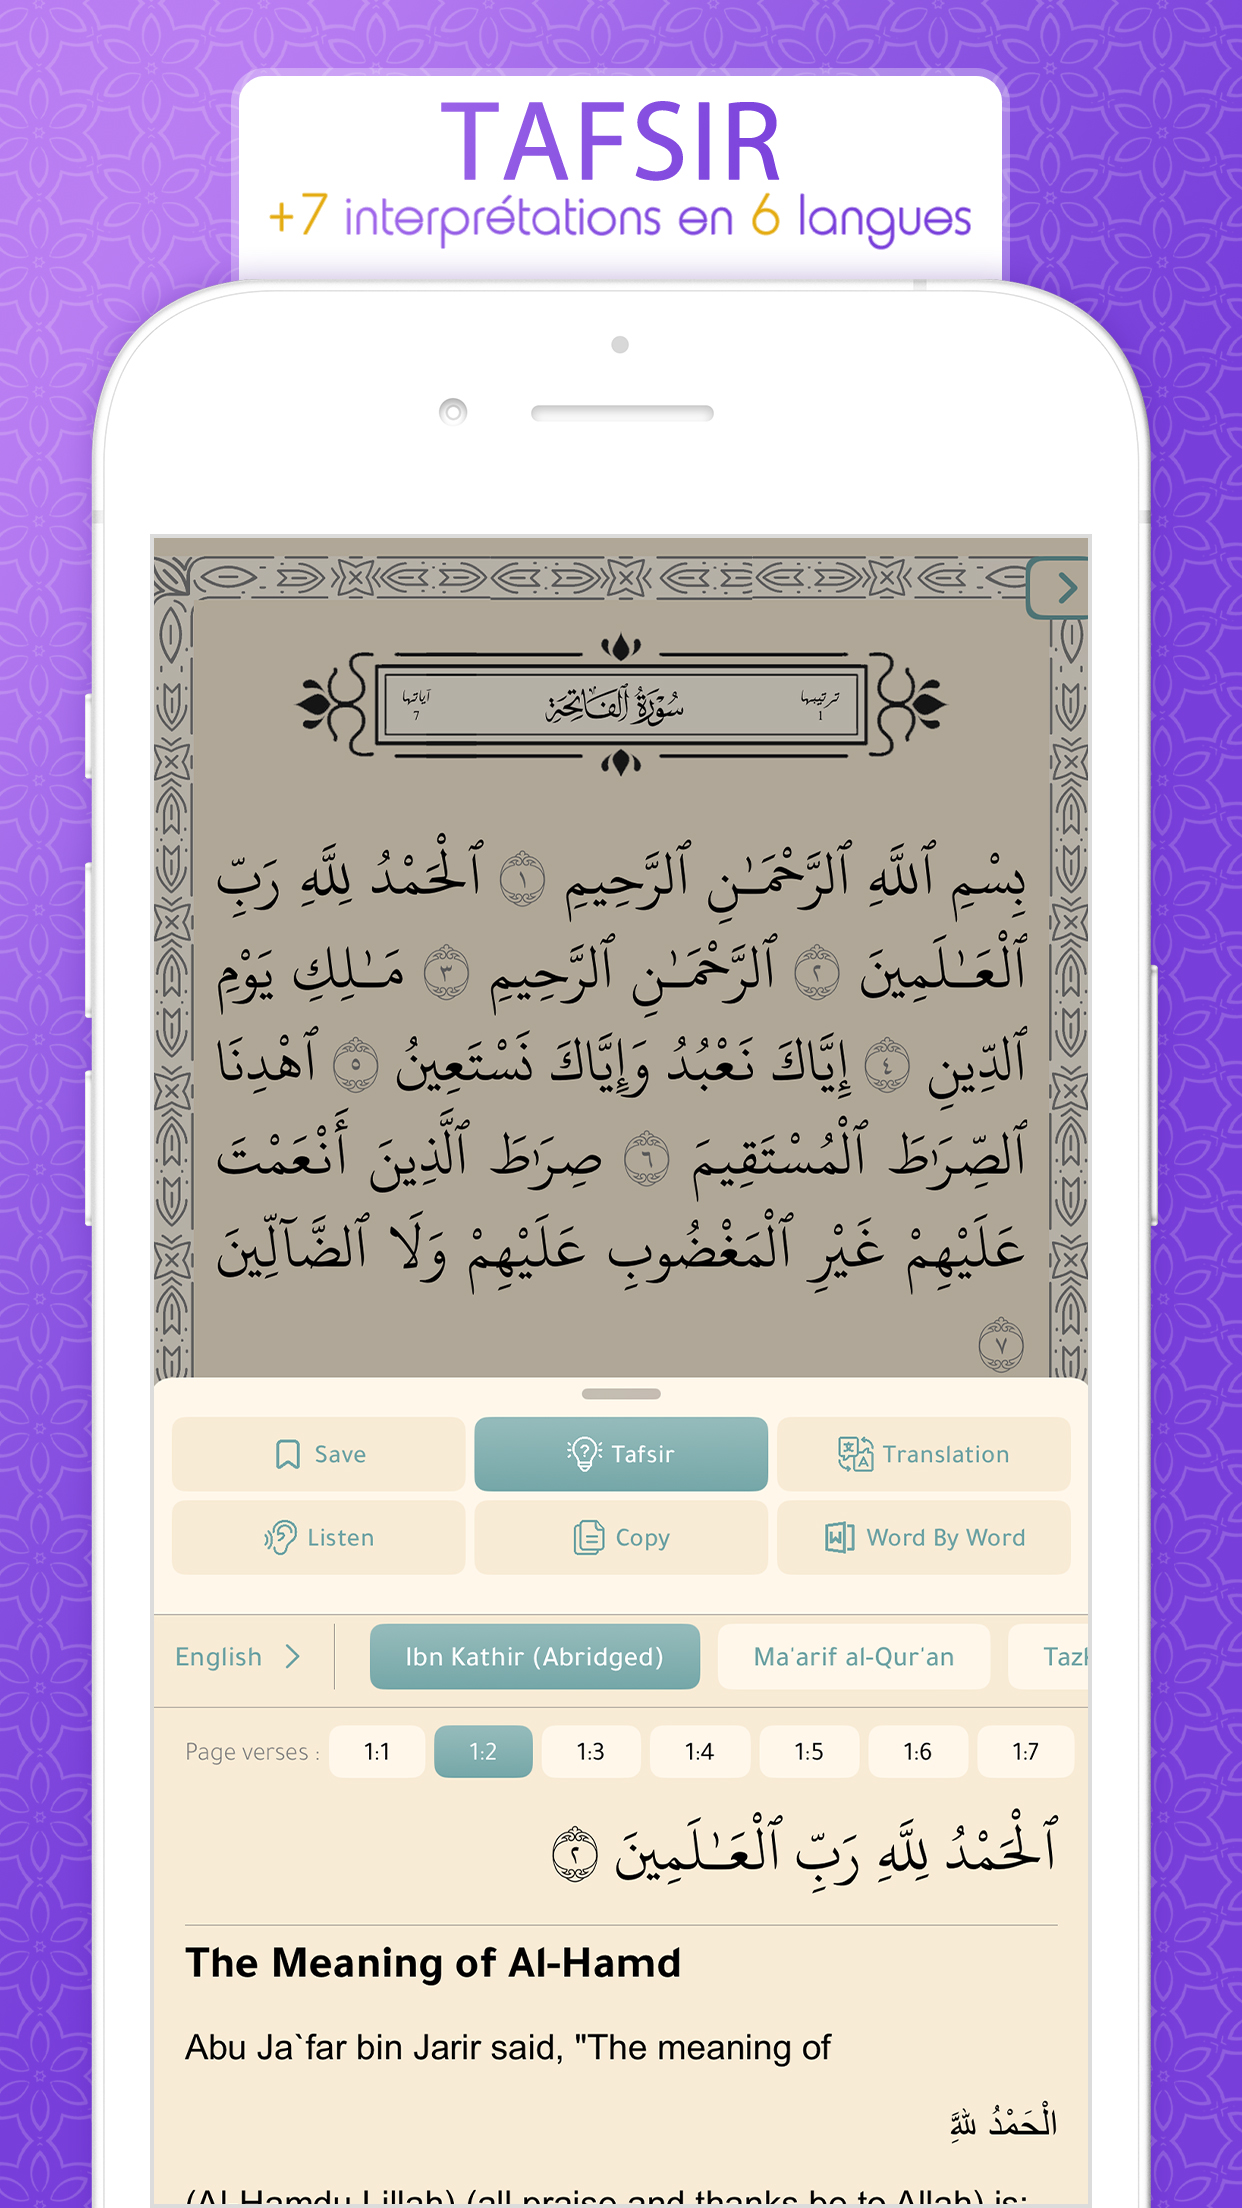 TAFSIR
+7 interprétations en 6 langues
ترتيبها
1
سُورَةُ ٱلْفَاتِحَةِ
آياتها
7
بِسْمِ ٱللَّهِ ٱلرَّحْمَـٰنِ ٱلرَّحِيمِ ١ ٱلْحَمْدُ لِلَّهِ رَبِّ
ٱلْعَـٰلَمِينَ ٢ ٱلرَّحْمَـٰنِ ٱلرَّحِيمِ ٣ مَـٰلِكِ يَوْمِ
ٱلدِّينِ ٤ إِيَّاكَ نَعْبُدُ وَإِيَّاكَ نَسْتَعِينُ ٥ ٱهْدِنَا
ٱلصِّرَٰطَ ٱلْمُسْتَقِيمَ ٦ صِرَٰطَ ٱلَّذِينَ أَنْعَمْتَ
عَلَيْهِمْ غَيْرِ ٱلْمَغْضُوبِ عَلَيْهِمْ وَلَا ٱلضَّآلِّينَ
٧
Save Tafsir Translation
Listen Copy Word By Word
English Ibn Kathir (Abridged) Ma'arif al-Qur'an Taz
Page verses : 1:1 1:2 1:3 1:4 1:5 1:6 1:7
ٱلْحَمْدُ لِلَّهِ رَبِّ ٱلْعَـٰلَمِينَ ٢
The Meaning of Al-Hamd
Abu Ja`far bin Jarir said, "The meaning of
الْحَمْدُ للَّهِ
(Al-Hamdu Lillah) (all praise and thanks be to Allah) is: